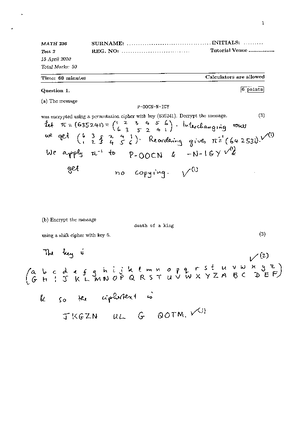 1
MATH 236 SURNAME: INITIALS:
Test 2 REG. NO: Tutorial Venue
13 April 2010
Total Marks: 50
Time: 60 minutes Calculators are allowed
Question 1. [6 points]
(a) The message
P-OOCN-N-IGY
was encrypted using a permutation cipher with key (635241). Decrypt the message. (3)
Let π = (635241) = (1 2 3 4 5 6 / 6 3 5 2 4 1). Interchanging rows
we get (6 3 5 2 4 1 / 1 2 3 4 5 6). Reordering gives π⁻¹ = (642531). ✓(1)
We apply π⁻¹ to P-OOCN & -N-IGY ✓(1)
get
no copying. ✓(1)
(b) Encrypt the message
death of a king
using a shift cipher with key 6. (3)
The key is ✓(2)
(a b c d e f g h i j k l m n o p q r s t u v w x y z)
(G H I J K L M N O P Q R S T U V W X Y Z A B C D E F)
& so the ciphertext is
JKGZN UL G QOTM. ✓(1)